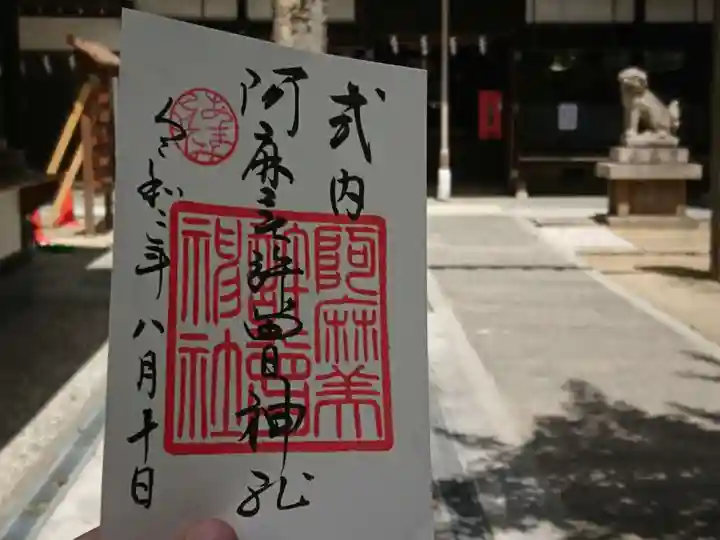 式内
阿麻美許曽神社
令和二年八月十日
阿麻美
許曽
神社